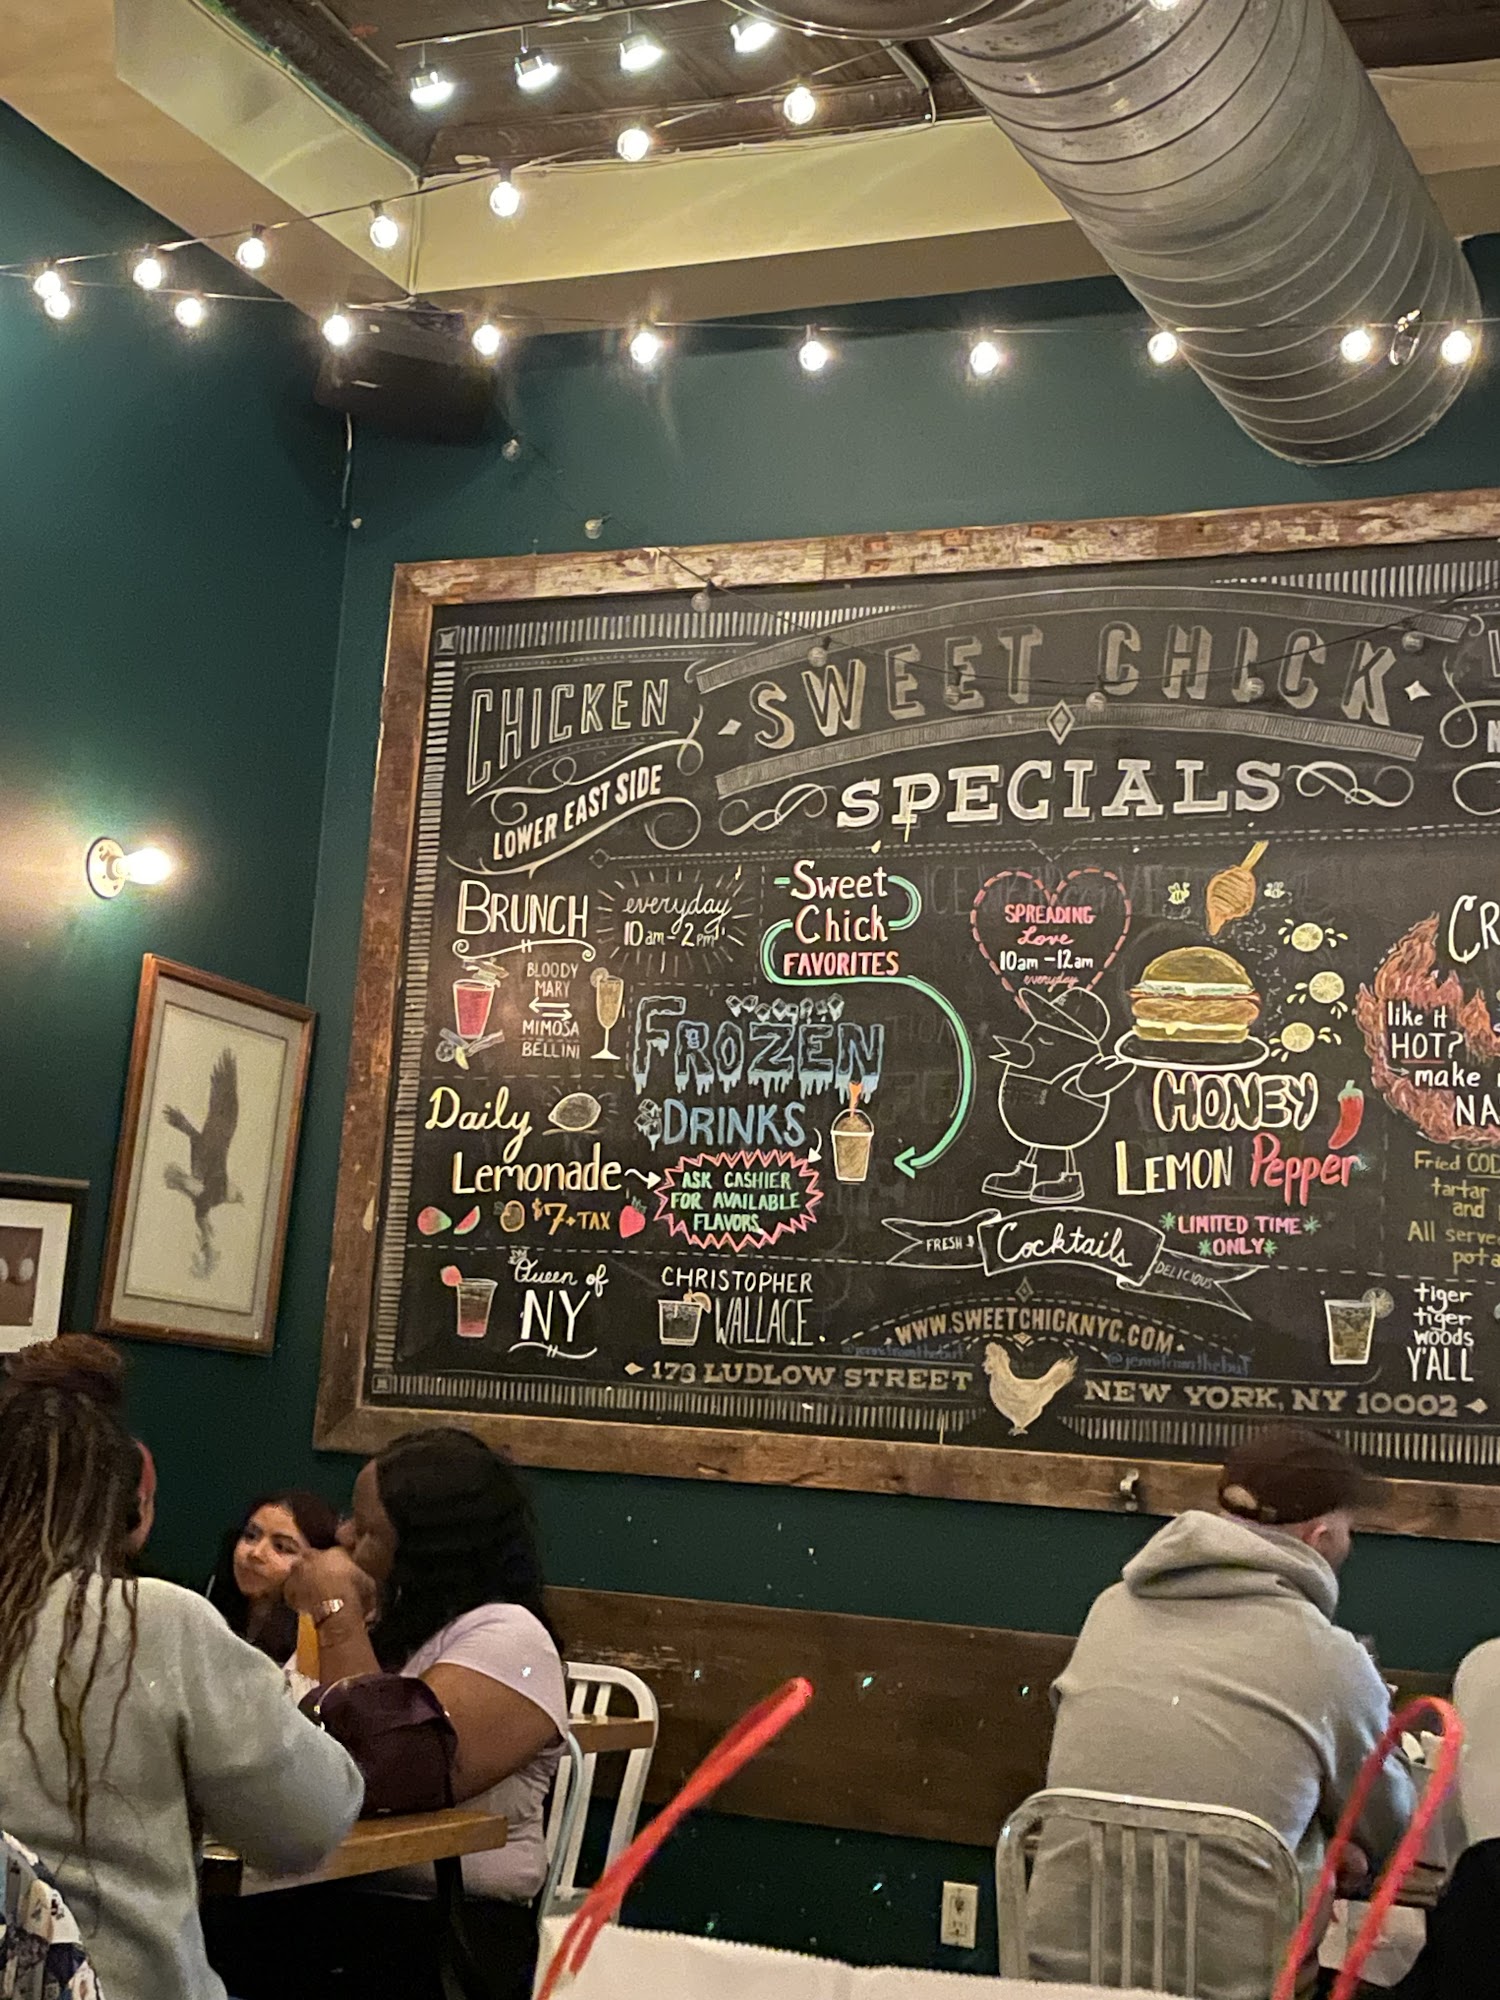 CHICKEN
LOWER EAST SIDE
SWEET CHICK
SPECIALS
BRUNCH
everyday
10am-2pm
BLOODY
MARY
MIMOSA
BELLINI
Sweet
Chick
FAVORITES
FROZEN
DRINKS
Daily
Lemonade
$7+TAX
ASK CASHIER
FOR AVAILABLE
FLAVORS
SPREADING
Love
10am-12am
everyday
HONEY
LEMON Pepper
LIMITED TIME
ONLY
CR
like it
HOT?
make
NA
Fried COD
tartar
and
All serve
pota
FRESH &
Cocktails
DELICIOUS
Queen of
NY
CHRISTOPHER
WALLACE.
tiger
tiger
woods
Y'ALL
WWW.SWEETCHICKNYC.COM
173 LUDLOW STREET
NEW YORK, NY 10002